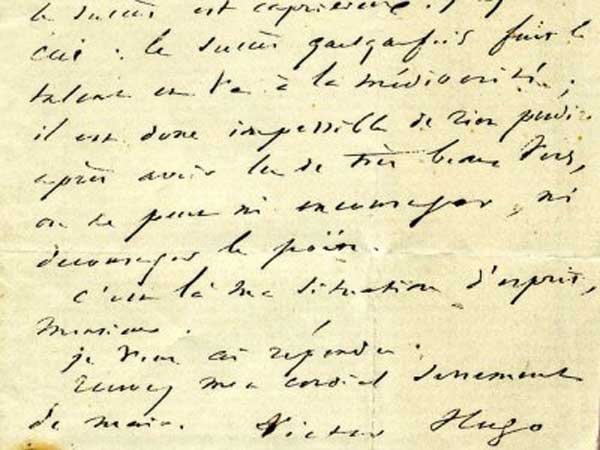 le succès est capricieux.
ceci : le succès quelquefois fuit le
talent et va à la médiocrité ;
il est donc impossible de rien prédire
après avoir lu de très beaux vers,
on ne peut ni encourager, ni
décourager le poëte.
c'est là ma situation d'esprit,
monsieur.
je veux répondre.
recevez mon cordial serrement
de main. Victor Hugo